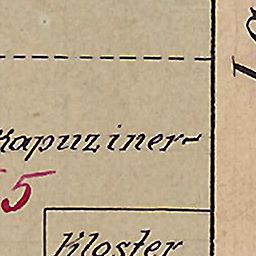 Kapuziner-
5
Kloster